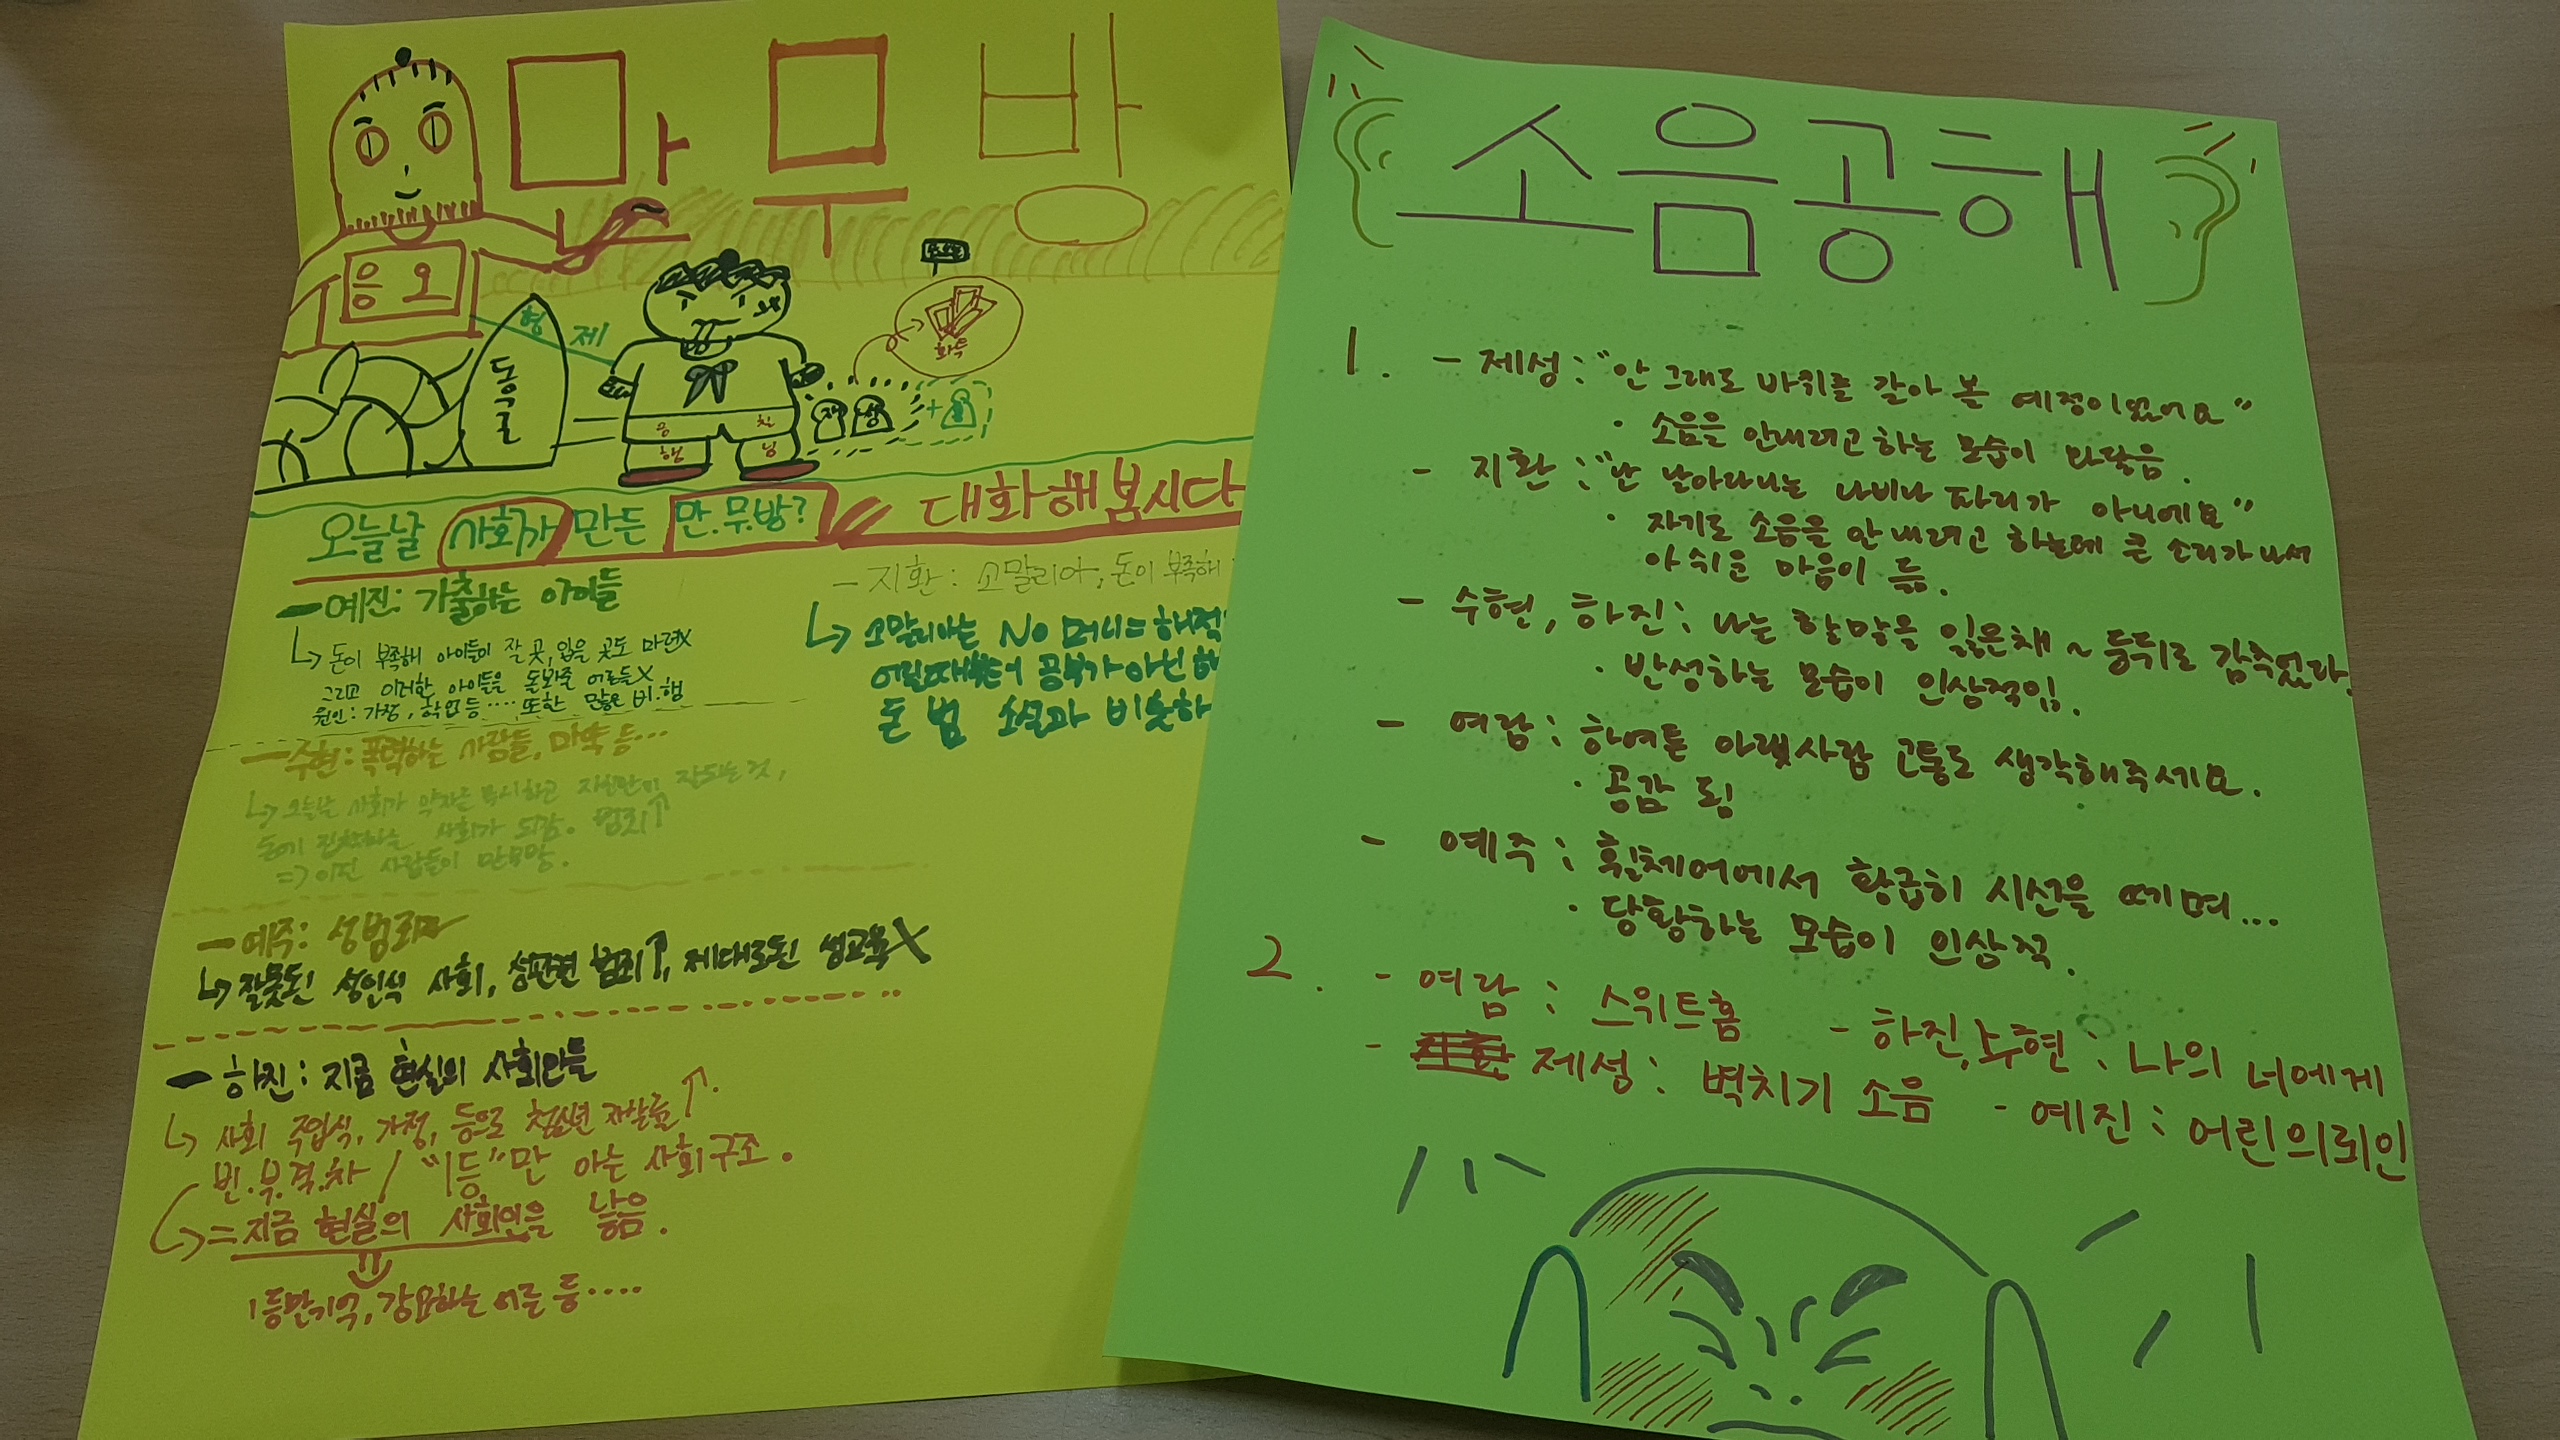 만무방
응오
형제
동굴
화투
응칠
형님
재성
오늘날 사회가 만든 만.무.방?
대화해봅시다
- 예진: 가출하는 아이들
↳ 돈이 부족해 아이들이 잘 곳, 입을 곳도 마련X
그리고 이러한 아이들을 돌봐줄 어른들X
원인: 가정, 학업 등···· 또한 많은 비.행
- 수현: 폭력하는 사람들, 마약 등···
↳ 오늘날 사회가 약자를 무시하고 자신만이 잘되는 것,
돈에 집착하는 사회가 되감. 범죄↑
=> 이런 사람들이 만무방.
- 예주: 성범죄자
↳ 잘못된 성인식 사회, 성관련 범죄↑, 제대로된 성교육X
- 하진: 지금 현실의 사회인들
↳ 사회 주입식, 가정, 등으로 청소년 자살률↑.
빈.부.격.차 / "1등"만 아는 사회구조.
↳ = 지금 현실의 사회인을 낳음.
1등만 기억, 강요하는 어른 등····
- 지환: 소말리아, 돈이 부족해
↳ 소말리아는 No 머니 = 해적
어릴때부터 공부가 아닌 해
돈 범 소설과 비슷하
소음공해
1. - 제성: "안 그래도 바퀴를 갈아 볼 예정이었어요"
· 소음을 안내려고 하는 모습이 와닿음.
- 지환: "난 날아다니는 나비나 파리가 아니에요"
· 자기도 소음을 안 내려고 하는데 큰 소리가 나서
아쉬운 마음이 듦.
- 수현, 하진: 나는 할말을 잃은채 ~ 등뒤로 감추었다.
· 반성하는 모습이 인상적임.
- 여람: 하여튼 아랫사람 고통도 생각해주세요.
· 공감 됨
- 예주: 휠체어에서 황급히 시선을 떼며...
· 당황하는 모습이 인상적.
2. - 여람: 스위트홈 - 하진, 수현: 나의 너에게
- 제성: 벽치기 소음 - 예진: 어린의뢰인